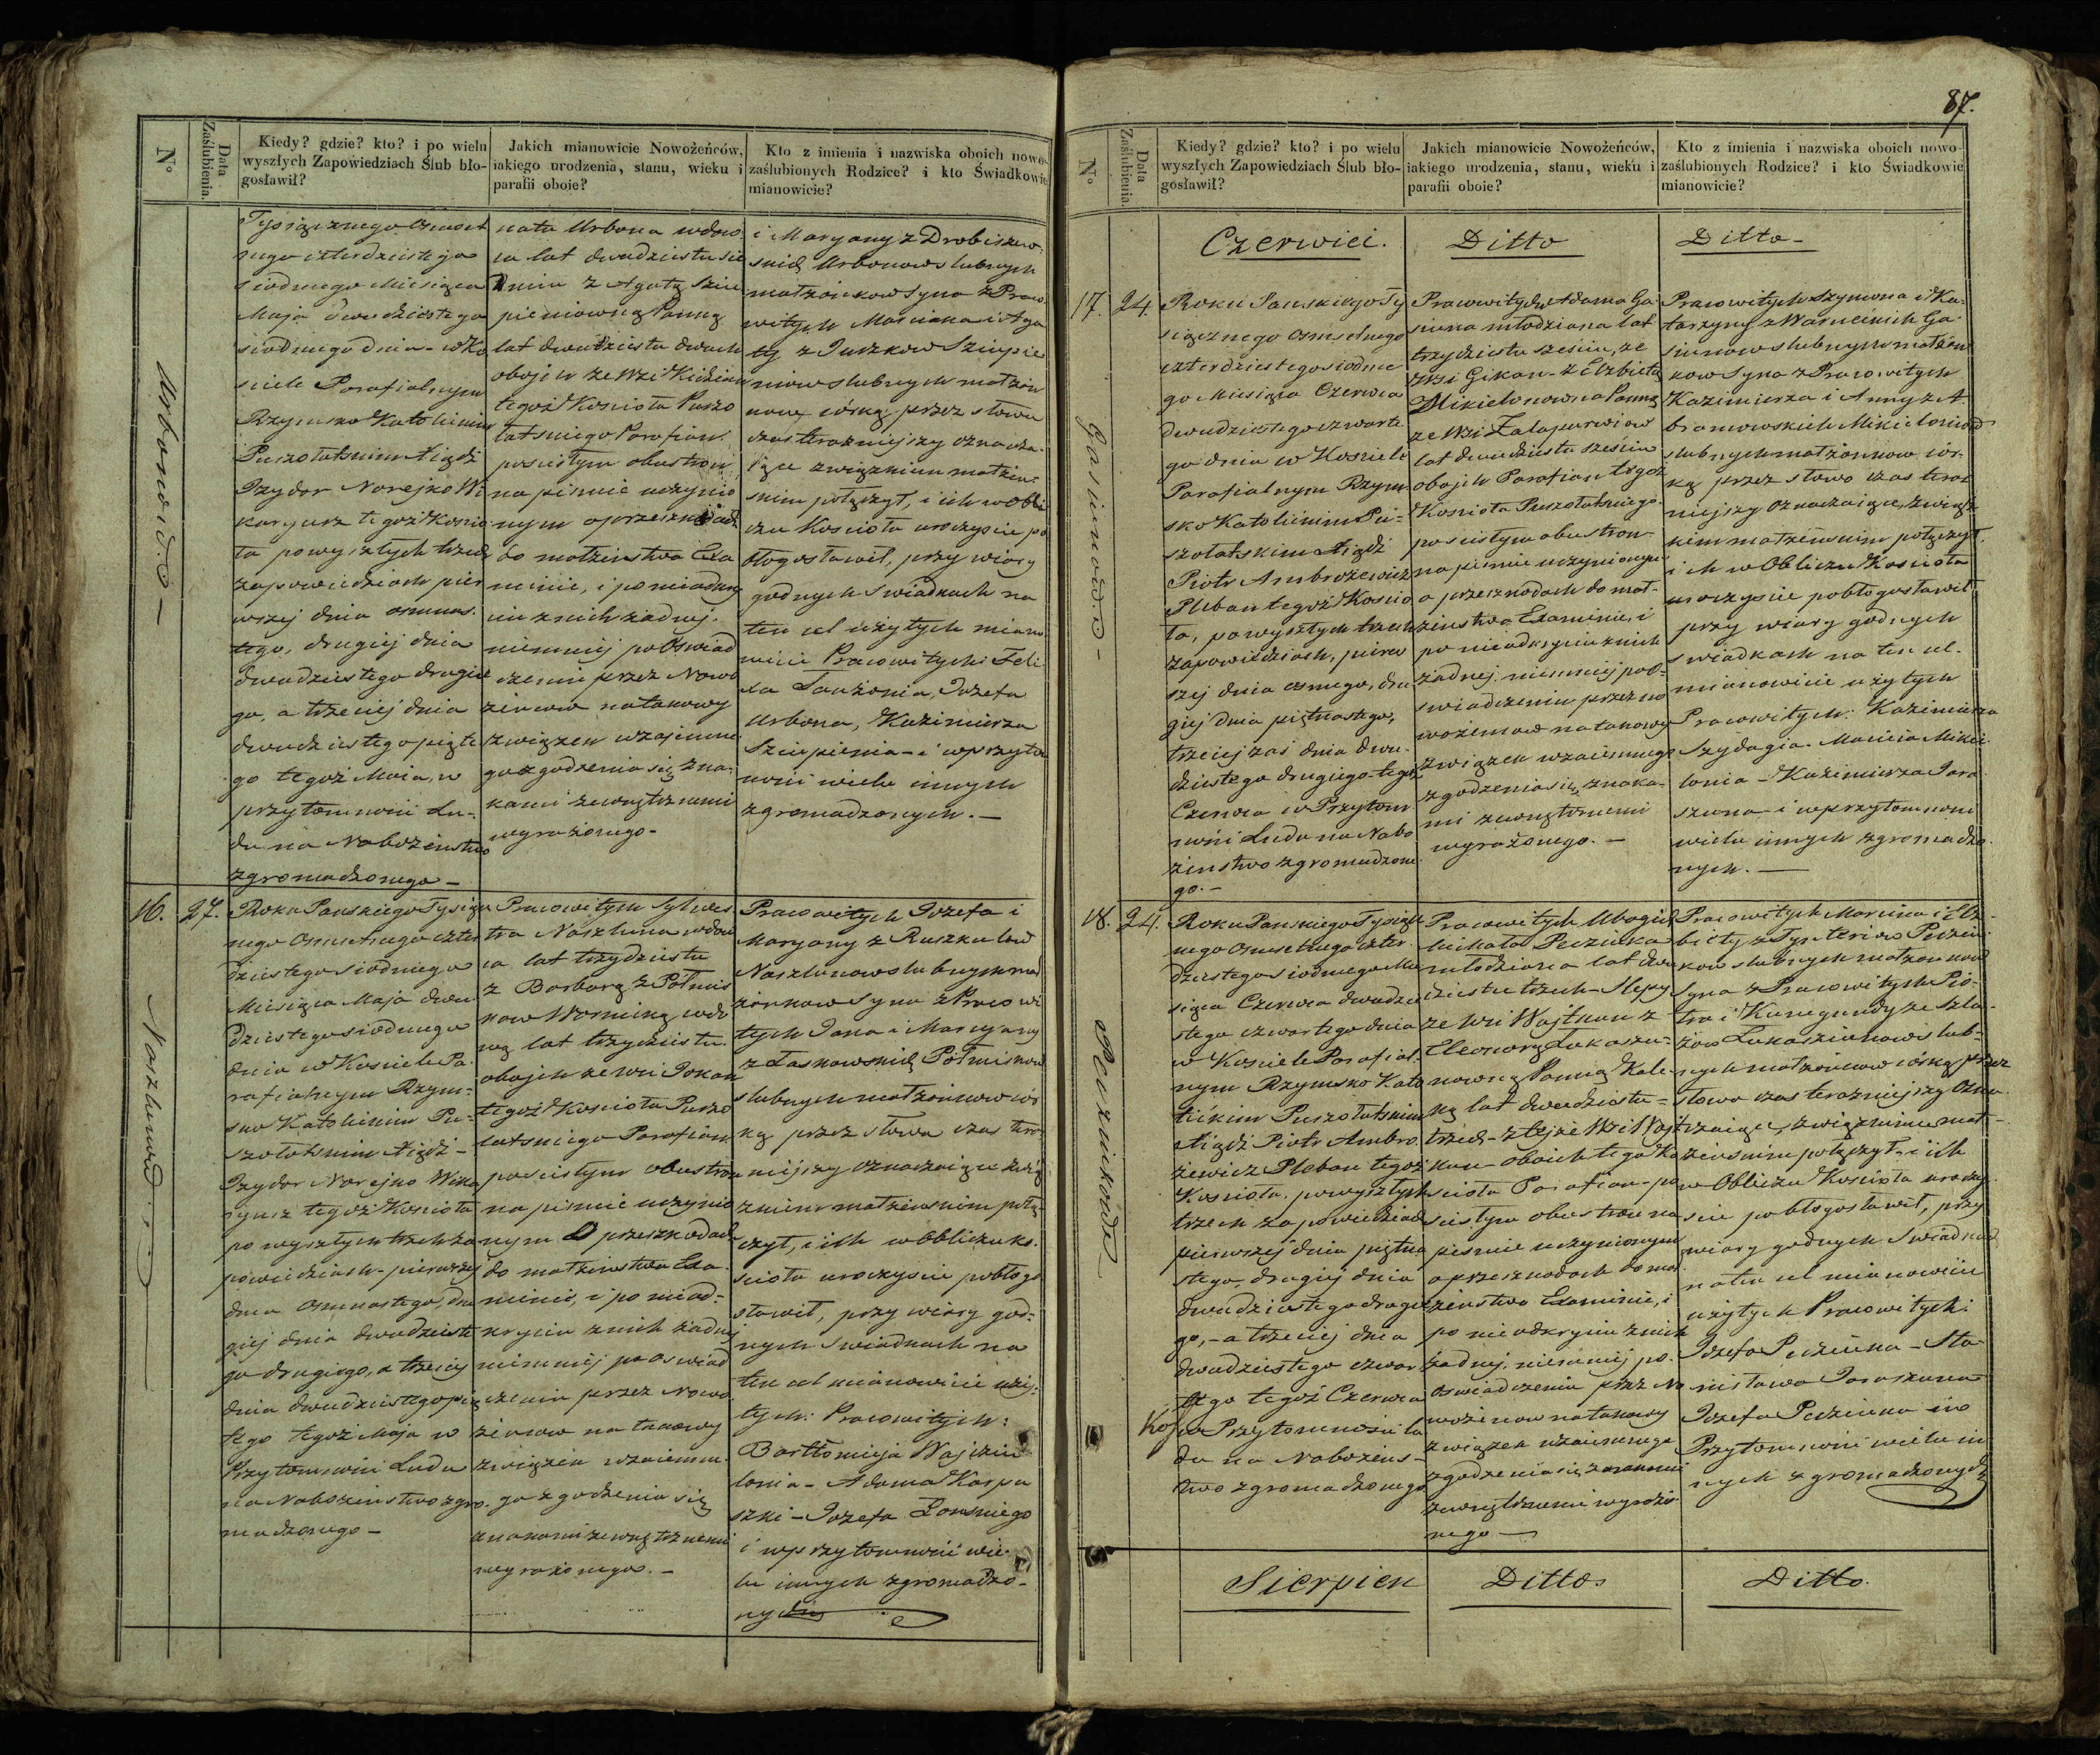 N°
Data Zaślubienia.
Kiedy? gdzie? kto? i po wielu
wyszłych Zapowiedziach Ślub bło-
gosławił?
Jakich mianowicie Nowożeńców,
iakiego urodzenia, stanu, wieku i
parafii oboie?
Kto z imienia i nazwiska oboich nowo-
zaślubionych Rodzice? i kto Świadkowie
mianowicie?
Urbonow
Tysiącznego Osmset
nego czterdziestego
siodmego Miesiąca
Maja dwudziestego
siodmego dnia - w Ko
sciele Parafialnym
Rzymsko Katolickim
Puszołatskim Xiądz
Izydor Norejko Wi
karyusz tegoż Koscio
ła po wyszłych trzech
zapowiedziach pier
wszej dnia osmnas-
tego, drugiej dnia
dwudziestego drugie
go, a trzeciej dnia
dwudziestego piąte
go tegoż Maja, w
przytomności Lu-
du na Nabożenstwo
zgromadzonego -
nata Urbona wdow
ca lat dwudziestu sie
dmiu z Agatą Szcie
pieniowną Panną
lat dwudziestu dwoch
obojch ze Wsi
tegoż Koscioła Puszo
łatskiego Parafian
po scisłym obustron
na pismie uczynio
nym o przeszkodach
do małżenstwa Exa
minie, i po nieodkry
ciu z nich żadnej.
niemniej po oswiad
czeniu przez Nowo
żencow na takowy
związek wzajemne
go zgodzenia się zna-
kami zewnętrznemi
wyrażonego -
i Maryany z Drobiszew-
skich Urbonow slubnych
małżonkow Syna z Praco
witych Marciana i Aga
ty z Juszkow Szciepie
niow slubnych małżon
kow, córkę przez słowa
czas teraźniejszy oznacza-
jące związkiem małżen-
skim połączył, i ich w Obli
czu Koscioła uroczyscie po
błogosławił, przy wiary
godnych Swiadkach na
ten cel użytych miano
wicie Pracowitych: Feli
xa Łaużonia, Jozefa
Urbona, Kazimierza
Szciepienia - i w przyto
mości wielu innych
zgromadzonych. -
16. 27.
Naszlunow
Roku Panskiego Tysiącz
nego Osmsetnego czter
dziestego siodmego
Miesiąca Maja dwu
dziestego siodmego
dnia w Kosciele Pa-
rafialnym Rzym-
sko Katolickim Pu-
szołatskim Xiądz -
Izydor Norejko Wika
ryusz tegoż Koscioła
po wyszłych trzech za
powiedziach - pierwszej
dnia Osmnastego, dru
giej dnia dwudzieste
go drugiego, a trzeciej
dnia dwudziestego pią
tego tegoż Maja w
Przytomności Ludu
na Nabożenstwo zgro-
madzonego -
Pracowitych Sylwes
tra Naszluna wdow
ca lat trzydziestu
z Barbarą z Połmis
kow Wornicką wdo
wą lat trzydziestu.
obojch ze wsi Jokan
tegoż Koscioła Puszo
łatskiego Parafian
po scisłym obustron
na pismie uczynio
nym O przeszkodach
do małżenstwa Exa-
minie, i po nieod-
kryciu z nich żadnej
niemniej po oswiad
czeniu przez Nowo
żencow na takowy
związek wzaiemne
go zgodzenia się
znakami zewnętrznemi
wyrażonego. -
Pracowitych Jozefa i
Maryany z Ruszkulow
Naszlunow slubnych mał
żonkow Syna z Pracowi
tych Jana i Maryany
z Łaskowskich Połmiskow
slubnych małżonkow cór
kę przez słowa czas tera-
niejszy oznaczające zwią
zkiem małżenskim połą-
czył, i ich w Obliczu Ko-
scioła uroczyscie pobłogo
sławił, przy wiary god-
nych Swiadkach na
ten cel mianowicie uży-
tych: Pracowitych:
Bartłomieja Wajciu
lonia - Adama Karpu
szki - Jozefa Zowskiego
i w przytomności wie-
lu innych zgromadzo-
nych
87.
N°
Data Zaślubienia.
Kiedy? gdzie? kto? i po wielu
wyszłych Zapowiedziach Ślub bło-
gosławił?
Jakich mianowicie Nowożeńców,
iakiego urodzenia, stanu, wieku i
parafii oboie?
Kto z imienia i nazwiska oboich nowo-
zaślubionych Rodzice? i kto Świadkowie
mianowicie?
Czerwiec.
Ditto
Ditto -
17. 24.
Gasiunow
Roku Panskiego Ty
siącznego Osmsetnego
czterdziestego siodme
go Miesiąca Czerwca
dwudziestego czwarte
go dnia w Kosciele
Parafialnym Rzym
sko Katolickim Pu-
szołatskim Xiądz
Piotr Ambrożewicz
Pleban tegoż Koscio
ła, po wyszłych trzech
zapowiedziach, pierw
szej dnia osmego, dru
giej dnia piętnastego,
trzeciej zaś dnia dwu-
dziestego drugiego tegoż
Czerwca w Przytom
ności Ludu na Nabo
żenstwo zgromadzone
go. -
Pracowitych Adama Ga
siuna młodziana lat
trzydziestu szesciu, ze
Wsi Gikan - z Elżbietą
Mikielonowną Panną
ze Wsi Załapurwiow
lat dwudziestu szesciu
obojch Parafian tegoż
Koscioła Puszołatskiego
po scisłym obustron-
na pismie uczynionym
o przeszkodach do mał-
żenstwa Examinie, i
po nieodkryciu z nich
żadnej, niemniej po O-
swiadczeniu przez no
wożencow na takowy
związek wzaiemnego
zgodzenia się znaka-
mi zewnętrznemi
wyrażonego. -
Pracowitych Szymona i Ka-
tarzyny z Warneckich Ga-
siunow slubnych małżon
kow Syna z Pracowitych
Kazimierza i Anny z A
bramowskich Mikieloniow
slubnych małżonkow cór-
kę przez słowo czas teraz
niejszy oznaczaiące, związ
kiem małżenskim połączył.
i ich w Obliczu Koscioła
uroczyscie pobłogosławił
przy wiary godnych
swiadkach na ten cel
mianowicie użytych
Pracowitych: Kazimierza
Szydagia. Macieia Mikie
lonia - Kazimierza Jara
szuna - i w przytomności
wielu innych zgromadzo-
nych. -
18. 24.
Peczukow
Roku Panskiego Tysiącz
nego Osmsetnego czter-
dziestego siodmego Mie
siąca Czerwca dwudzie
stego czwartego dnia
w Kosciele Parafial-
nym Rzymsko Kato
lickim Puszołatskim
Xiądz Piotr Ambro-
żewicz Pleban tegoż
Koscioła, po wyszłych
trzech zapowiedziach
pierwszej dnia piętna
stego, drugiej dnia
dwudziestego drugie
go, - a trzeciej dnia
dwudziestego czwar
tego tegoż Czerwca
w Przytomności Lu
du na Nabożens-
two zgromadzonego
Pracowitych Ubogich
Michała Peciuka
młodziana lat dwu
dziestu trzech - Slepy
ze Wsi Wajtkun z
Eleonorą Łukaszu-
nowną Panną Kale-
ką lat dwudziestu -
trzech - z tejże Wsi Wajt
kun - oboich tegoż Ko
scioła Parafian - po
scisłym obustron na
pismie uczynionym
o przeszkodach do mał
żenstwa Examinie, i
po nieodkryciu z nich
żadnej, niemniej po-
oswiadczeniu przez No
wożencow na takowy
związek wzaiemnego
zgodzenia się znakami
zewnętrznemi wyrażo-
nego -
Pracowitych Marcina i Elż-
biety z Peciu-
kow slubnych małżonkow
Syna z Pracowitych Pio-
tra i Kunegundy ze Szla-
żow Łukaszunow slub-
nych małżonkow córkę przez
słowa czas teraźniejszy Ozna-
czaiące, związkiem mał-
żenskim połączył - i ich
w Obliczu Koscioła uroczy-
scie pobłogosławił, przy
wiary godnych Swiadkach
na ten cel mianowicie
użytych Pracowitych:
Jozefa Peciuka - Sta-
nisława Jaraszuna
Jozefa Peciuna i w
Przytomności wielu in
nych zgromadzonych
Sierpien
Ditto.
Ditto.